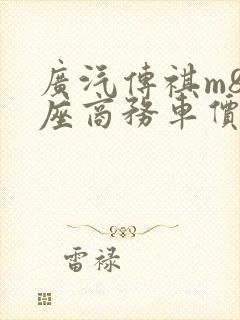 廣汽傳祺m8
座商務車價
雷禄